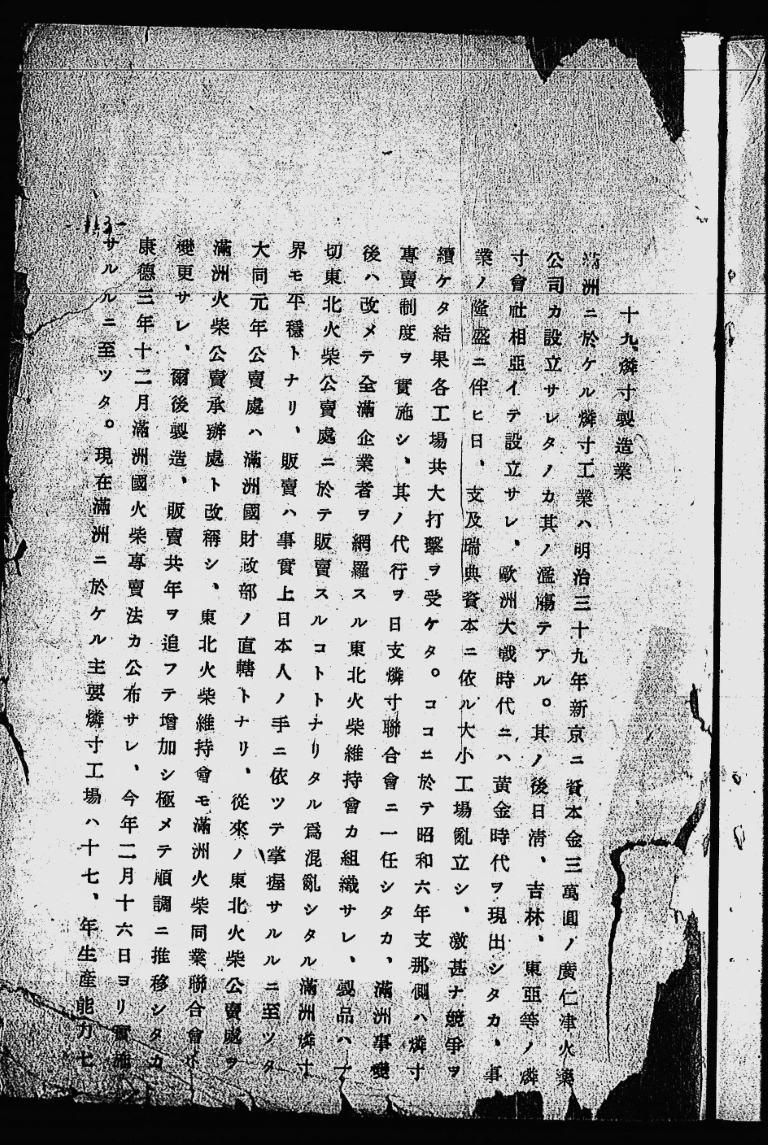 十九、燐寸製造業
滿洲ニ於ケル燐寸工業ハ明治三十九年新京ニ資本金三萬圓ノ廣仁津火藥
公司カ設立サレタノカ其ノ濫觴テアル。其ノ後日淸、吉林、東亞等ノ燐
寸會社相亞イテ設立サレ、歐洲大戰時代ニハ黃金時代ヲ現出シタカ、事
業ノ隆盛ニ伴ヒ日、支及瑞典資本ニ依ル大小工場亂立シ、激甚ナ競爭ヲ
續ケタ結果各工場共大打擊ヲ受ケタ。ココニ於テ昭和六年支那側ハ燐寸
專賣制度ヲ實施シ、其ノ代行ヲ日支燐寸聯合會ニ一任シタカ、滿洲事變
後ハ改メテ全滿企業者ヲ網羅スル東北火柴維持會カ組織サレ、製品ハ一
切東北火柴公賣處ニ於テ販賣スルコトトナリタル爲混亂シタル滿洲燐寸
界モ平穩トナリ、販賣ハ事實上日本人ノ手ニ依ツテ掌握サルルニ至ツタ
大同元年公賣處ハ滿洲國財政部ノ直轄トナリ、從來ノ東北火柴公賣處ヲ
滿洲火柴公賣承辦處ト改稱シ、東北火柴維持會モ滿洲火柴同業聯合會ト
變更サレ、爾後製造、販賣共年ヲ追フテ增加シ極メテ順調ニ推移シタカ
康德三年十二月滿洲國火柴專賣法カ公布サレ、今年二月十六日ヨリ實施
サルルニ至ツタ。現在滿洲ニ於ケル主要燐寸工場ハ十七、年生產能力七
-113-